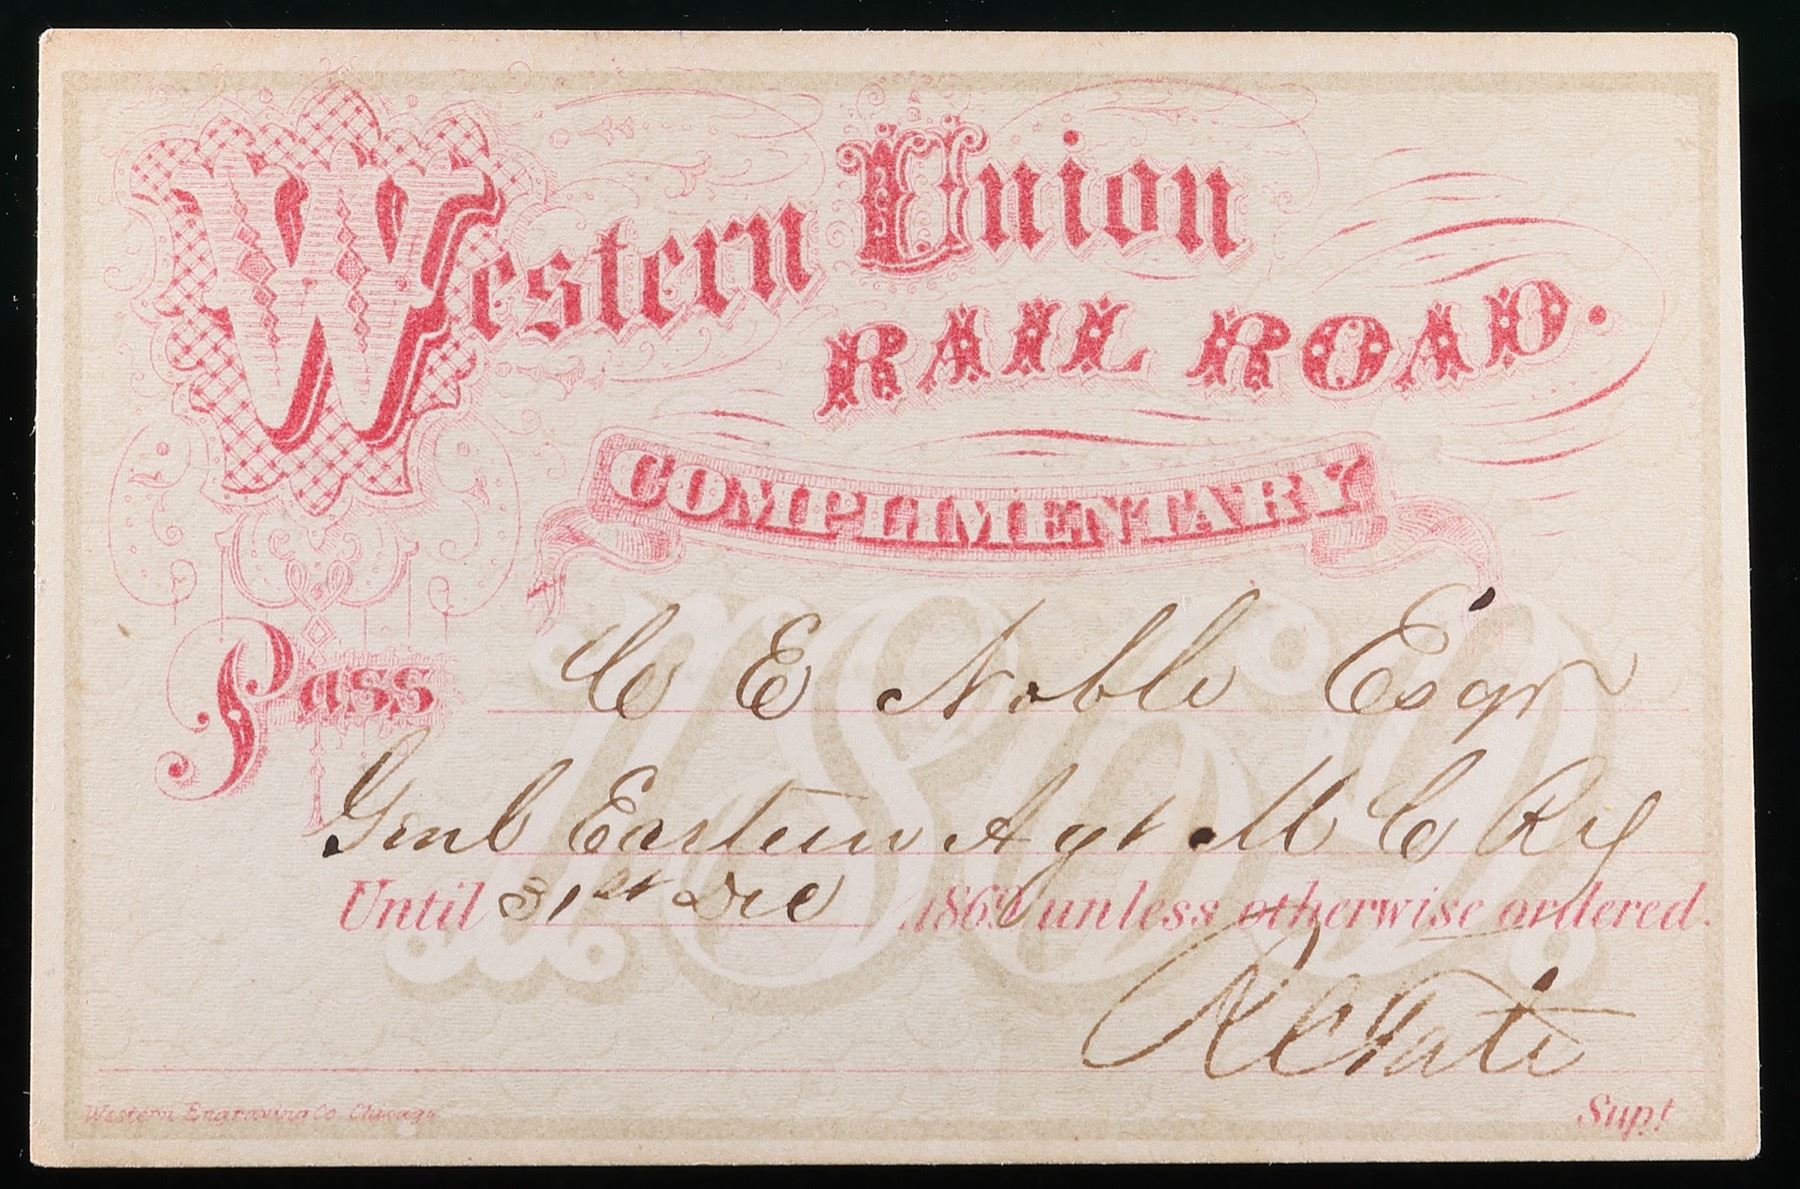 Western Union
RAIL ROAD.
COMPLIMENTARY
Pass C E Noble Esqr
Genl Eastern Agt M C Ry
Until 31st Dec 1869 unless otherwise ordered.
1869
Supt
Western Engraving Co. Chicago